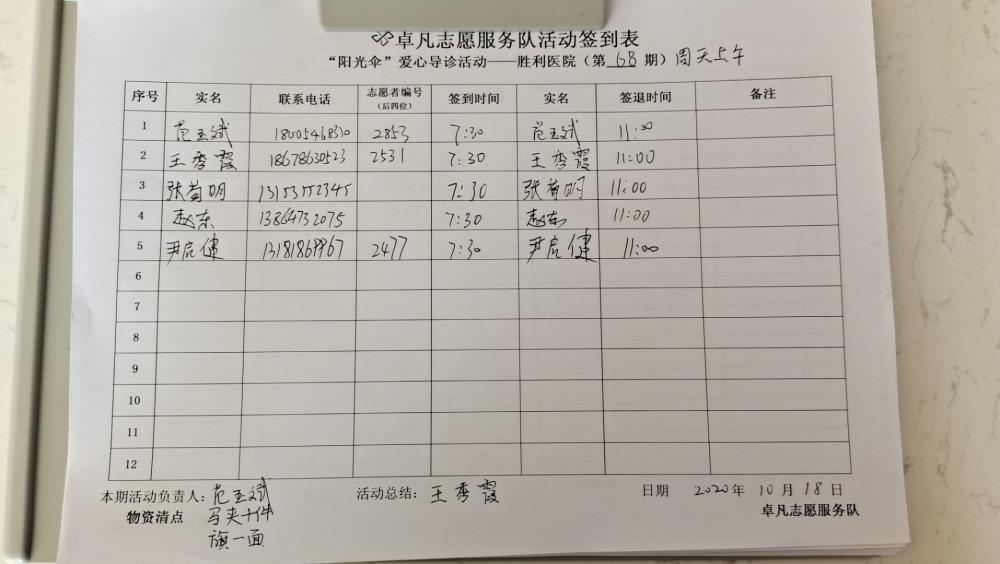 卓凡志愿服务队活动签到表
“阳光伞”爱心导诊活动——胜利医院（第 68 期）周天上午
序号 实名 联系电话 志愿者编号（后四位） 签到时间 实名 签退时间 备注
1 范玉斌 18005468310 2853 7:30 范玉斌 11:00
2 王秀霞 18678630523 2531 7:30 王秀霞 11:00
3 张首明 13153552345 7:30 张首明 11:00
4 赵东 13864732075 7:30 赵东 11:00
5 尹启健 13181869967 2477 7:30 尹启健 11:00
6
7
8
9
10
11
12
本期活动负责人：范玉斌 活动总结：王秀霞 日期 2020年 10月 18日
物资清点 马夹十件 卓凡志愿服务队
旗一面